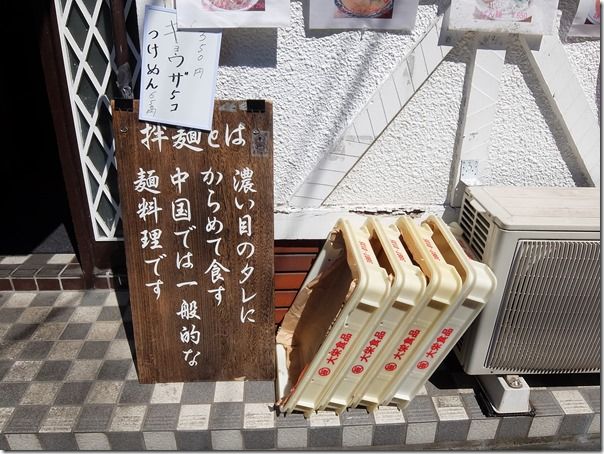 350円
キョウザ5コ
つけめん
拌麺とは
濃い目のタレに
からめて食す
中国では一般的な
麺料理です
大栄食品
大栄食品
大栄食品